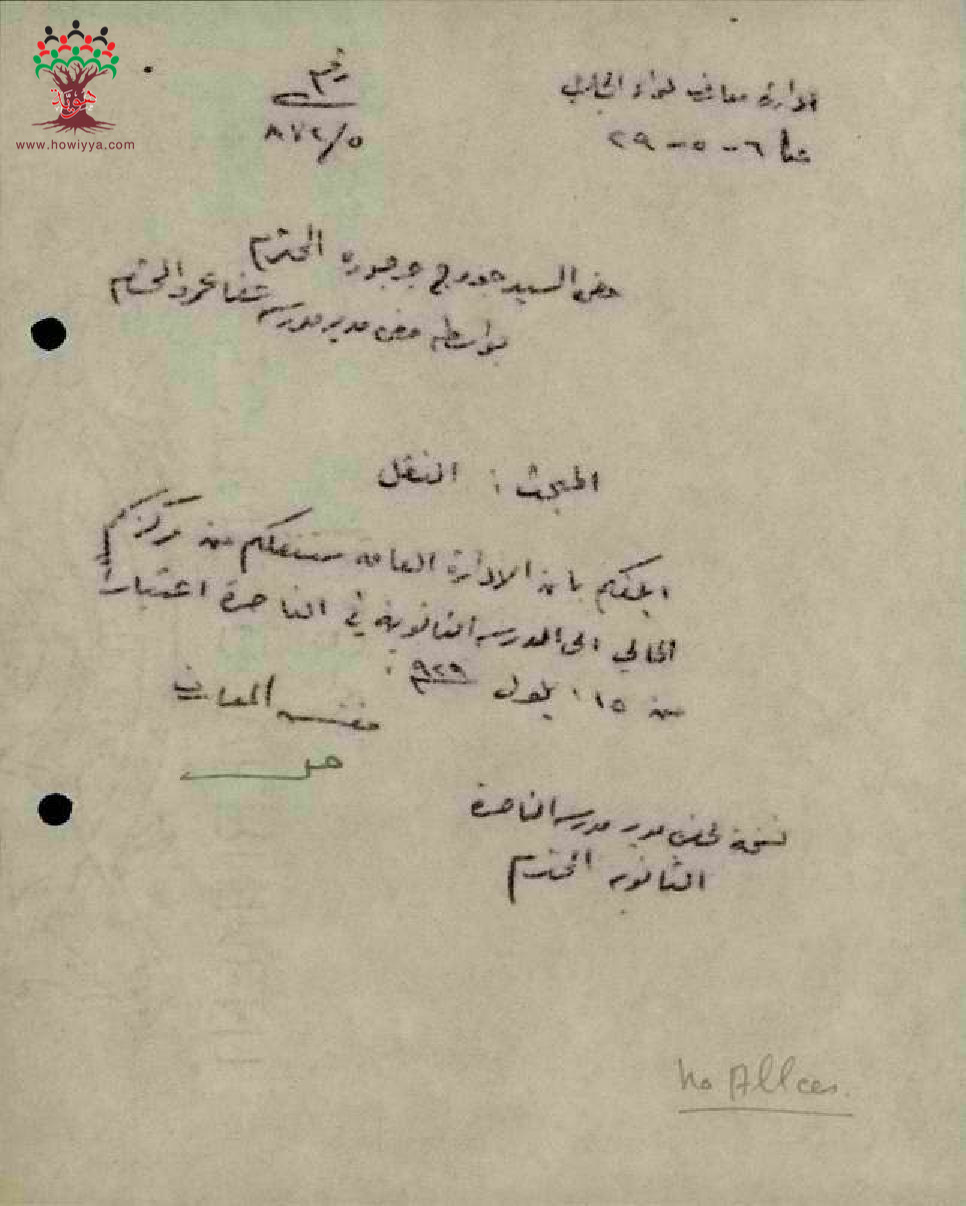 هوية
www.howiyya.com
ادارة معارف لواء الجليل
عكا ٦-٥-٢٩
رقم
٨٧٢/٥
حضرة السيد جورج جرجوره المحترم
بواسطة حضرة مدير مدرسة شفا عمرو المحترم
المبحث : النقل
ابلغكم بان الادارة العامة ستنقلكم من مركزكم
الحالي الى المدرسة الثانوية في الناصرة اعتباراً
من ١٥ ايلول ٩٢٩ .
مفتش المعارف
نسخة لحضرة مدير مدرسة الناصرة
الثانوية المحترم
No Allces.